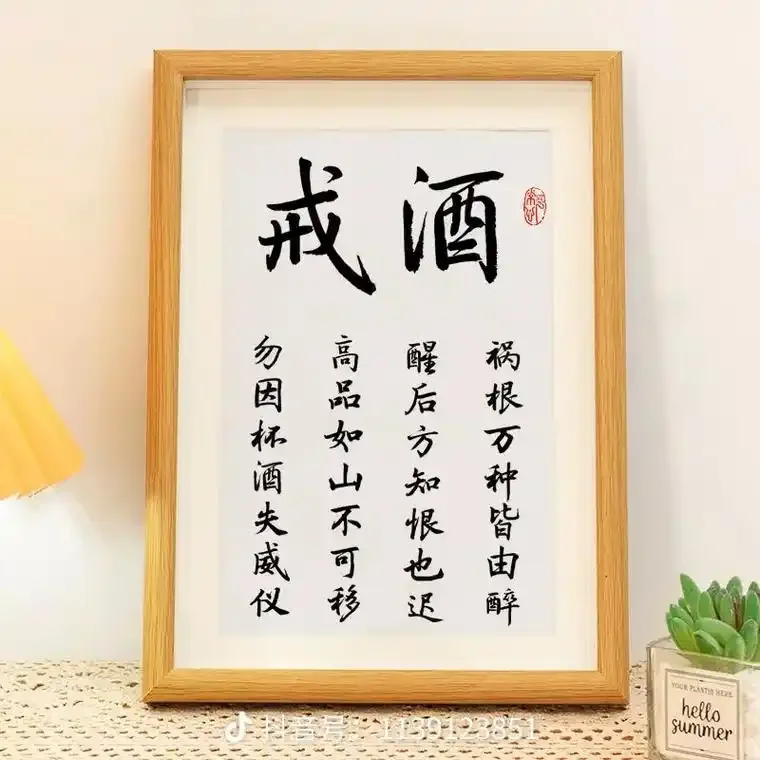 戒酒
祸根万种皆由醉
醒后方知恨也迟
高品如山不可移
勿因杯酒失威仪
抖音号：1139123851
YOUR PLANTIS HERE
hello
summer